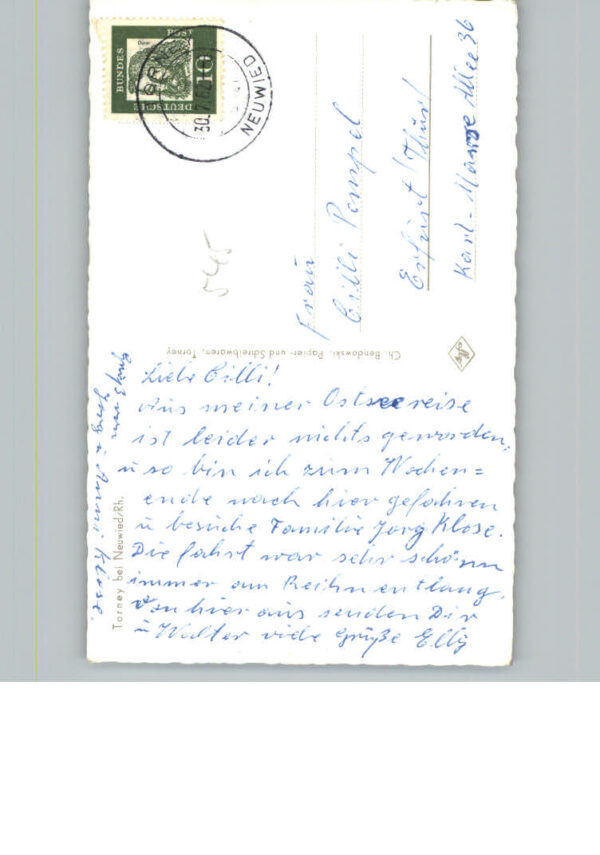 Liebe Cilli!
Aus meiner Ostseereise
ist leider nichts geworden,
u so bin ich zum Wochen=
ende nach hier gefahren
u besuche Familie Jörg Klose.
Die Fahrt war sehr schön
immer am Reihn entlang.
Von hier aus senden Dir
u Walter viele Grüße Elly
Gruß von
Jörg u Anni Klose.
Torney bei Neuwied/Rh.
Ch. Bendawski, Papier- und Schreibwaren, Torney
Frau
Cilli Pempel
Erfurt/Thür/
Karl-Marx Allee 36
545
DEUTSCHE
BUNDES
POST
10
Dürer
NEUWIED
30.7.62